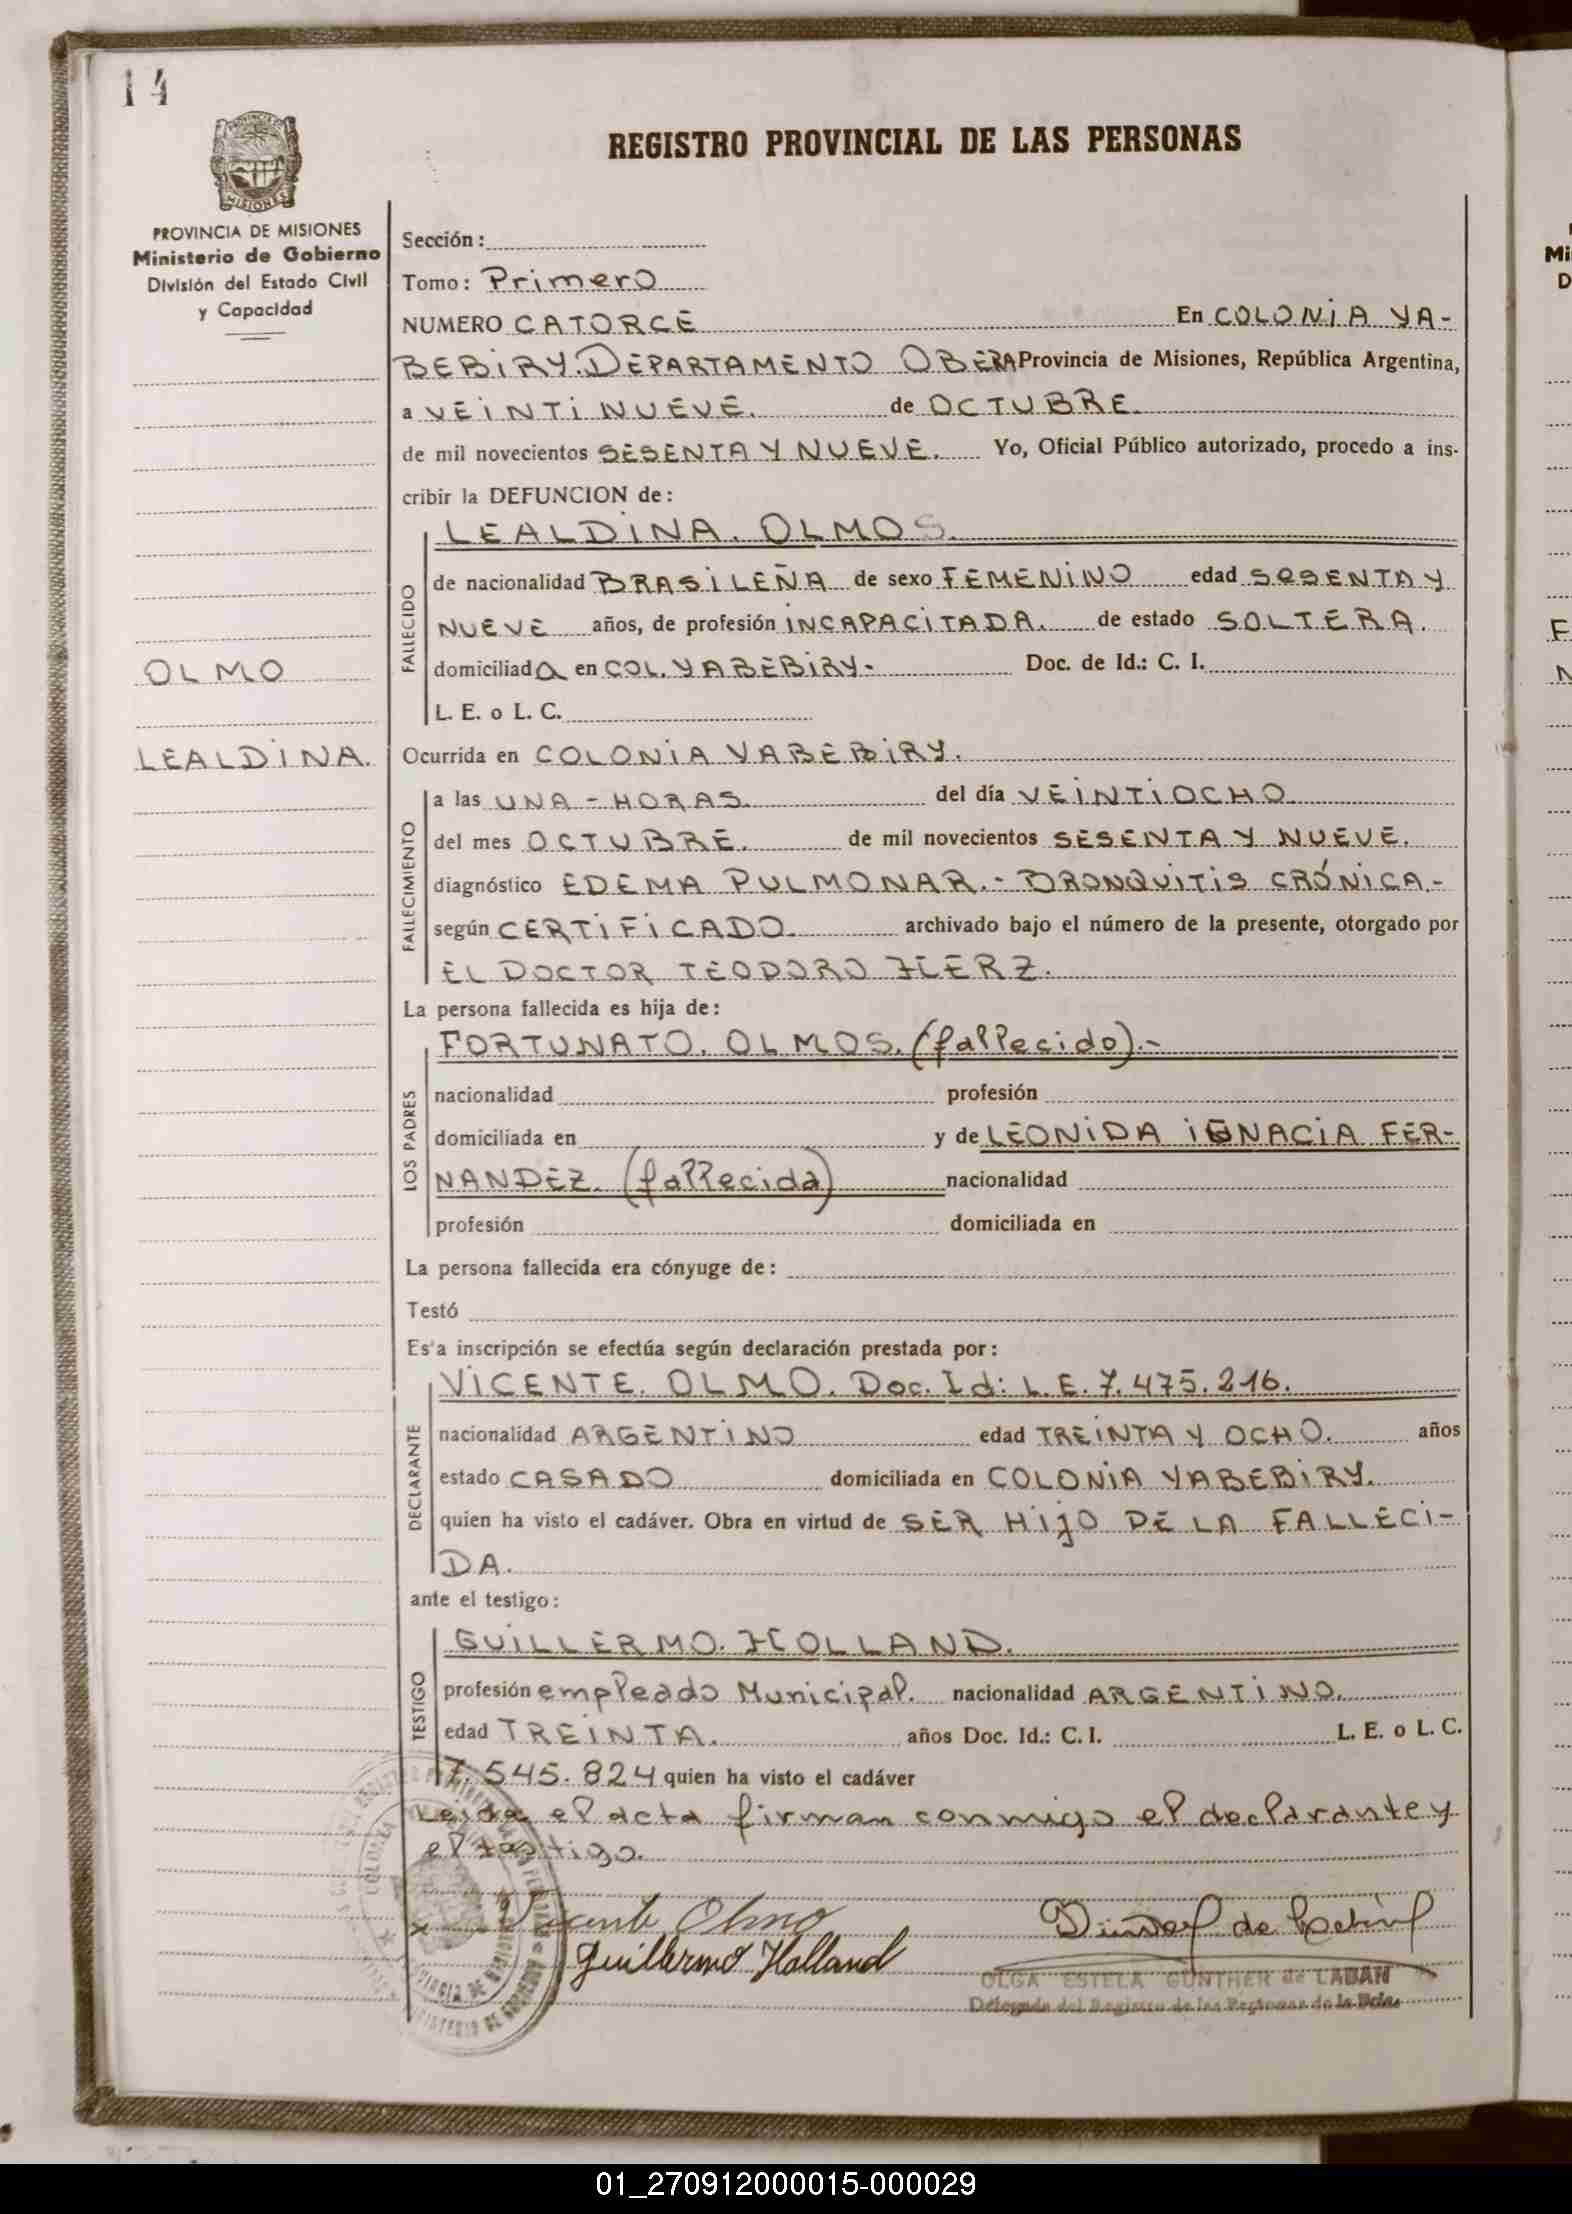 14
PROVINCIA DE MISIONES
MISIONES
PROVINCIA DE MISIONES
Ministerio de Gobierno
División del Estado Civil
y Capacidad
OLMO
LEALDINA.
REGISTRO PROVINCIAL DE LAS PERSONAS
Sección:
Tomo: Primero
NUMERO CATORCE En COLONIA YA-
BEBIRY. DEPARTAMENTO OBERA Provincia de Misiones, República Argentina,
a VEINTINUEVE. de OCTUBRE.
de mil novecientos SESENTA Y NUEVE. Yo, Oficial Público autorizado, procedo a ins-
cribir la DEFUNCION de:
LEALDINA. OLMOS.
FALLECIDO
de nacionalidad BRASILEÑA de sexo FEMENINO edad SESENTA Y
NUEVE años, de profesión INCAPACITADA. de estado SOLTERA.
domiciliada en COL. YABEBIRY- Doc. de Id.: C. I.
L. E. o L. C.
Ocurrida en COLONIA YABEBIRY.
FALLECIMIENTO
a las UNA - HORAS. del día VEINTIOCHO
del mes OCTUBRE. de mil novecientos SESENTA Y NUEVE.
diagnóstico EDEMA PULMONAR.- BRONQUITIS CRÓNICA.-
según CERTIFICADO. archivado bajo el número de la presente, otorgado por
EL DOCTOR TEODORO HERZ.
La persona fallecida es hija de:
FORTUNATO. OLMOS. (fallecido).-
LOS PADRES
nacionalidad profesión
domiciliada en y de LEONIDA IGNACIA FER-
NANDEZ. (fallecida) nacionalidad
profesión domiciliada en
La persona fallecida era cónyuge de:
Testó
Es'a inscripción se efectúa según declaración prestada por:
VICENTE. OLMO. Doc. Id: L.E. 7.475.216.
DECLARANTE
nacionalidad ARGENTINO edad TREINTA Y OCHO. años
estado CASADO domiciliada en COLONIA YABEBIRY.
quien ha visto el cadáver. Obra en virtud de SER HIJO DE LA FALLECI-
DA.
ante el testigo:
GUILLERMO. HOLLAND.
TESTIGO
profesión empleado Municipal. nacionalidad ARGENTINO.
edad TREINTA. años Doc. Id.: C. I. L. E. o L. C.
7.545.824 quien ha visto el cadáver
Leida el acta firman conmigo el declarante y
el testigo.
Vicente Olmo
Guillermo Holland
OLGA ESTELA GUNTHER de LABAN
Delegada del Registro de las Personas de la Pcia.
Mi
D
F
N
01_270912000015-000029